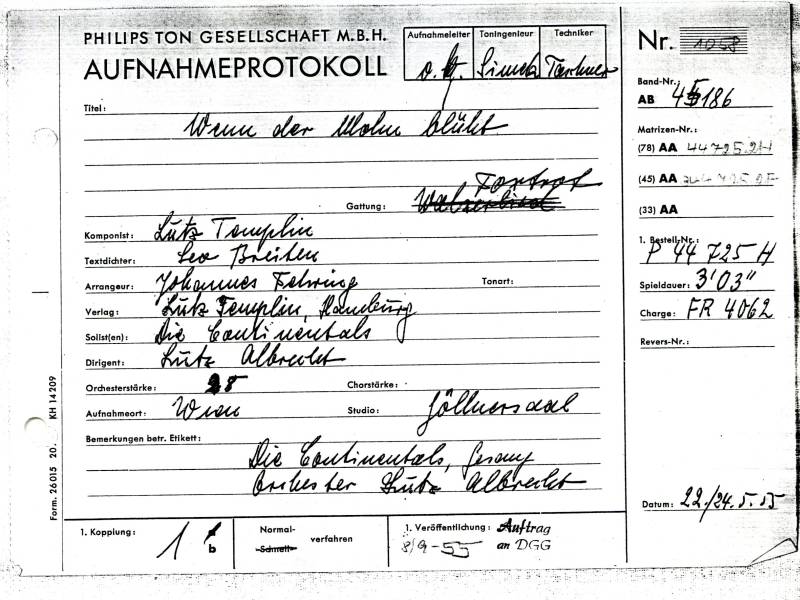 PHILIPS TON GESELLSCHAFT M.B.H.
AUFNAHMEPROTOKOLL
Aufnahmeleiter Toningenieur Techniker
Nr. 1058
Band-Nr.:
AB 45186
Titel: Wenn der Mohn blüht
Matrizen-Nr.:
(78) AA 44725.2H
(45) AA
(33) AA
Gattung: Foxtrot
Komponist: Lutz Templin
Textdichter: Leo Breiten
Arrangeur: Johannes Fehring Tonart:
Verlag: Lutz Templin, Hamburg
Solist(en): Die Continentals
Dirigent: Lutz Albrecht
Orchesterstärke: 25 Chorstärke:
Aufnahmeort: Wien Studio: Zöllnersaal
Bemerkungen betr. Etikett:
Die Continentals, Gesang
Orchester Lutz Albrecht
1. Bestell-Nr.:
P 44 725 H
Spieldauer: 3'03"
Charge: FR 4062
Revers-Nr.:
Datum: 22./24.5.55
1. Kopplung: 1 b
Normal-
Schnell- verfahren
1. Veröffentlichung: Auftrag
8/9-55 an DGG
Form. 26015 20. KH 14209